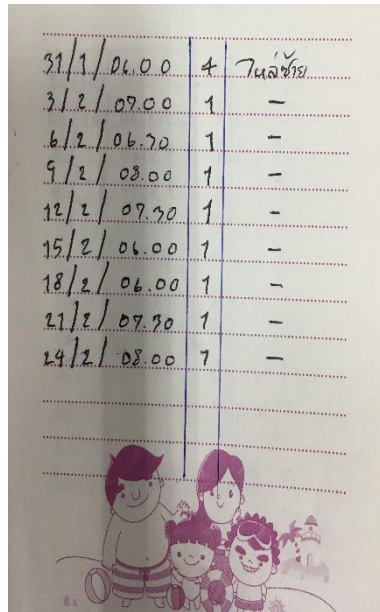 31/1/06.00 4 ไหล่ซ้าย
3/2/07.00 1 -
6/2/06.30 1 -
9/2/08.00 1 -
12/2/07.30 1 -
15/2/06.00 1 -
18/2/06.00 1 -
21/2/07.30 1 -
24/2/08.00 1 -